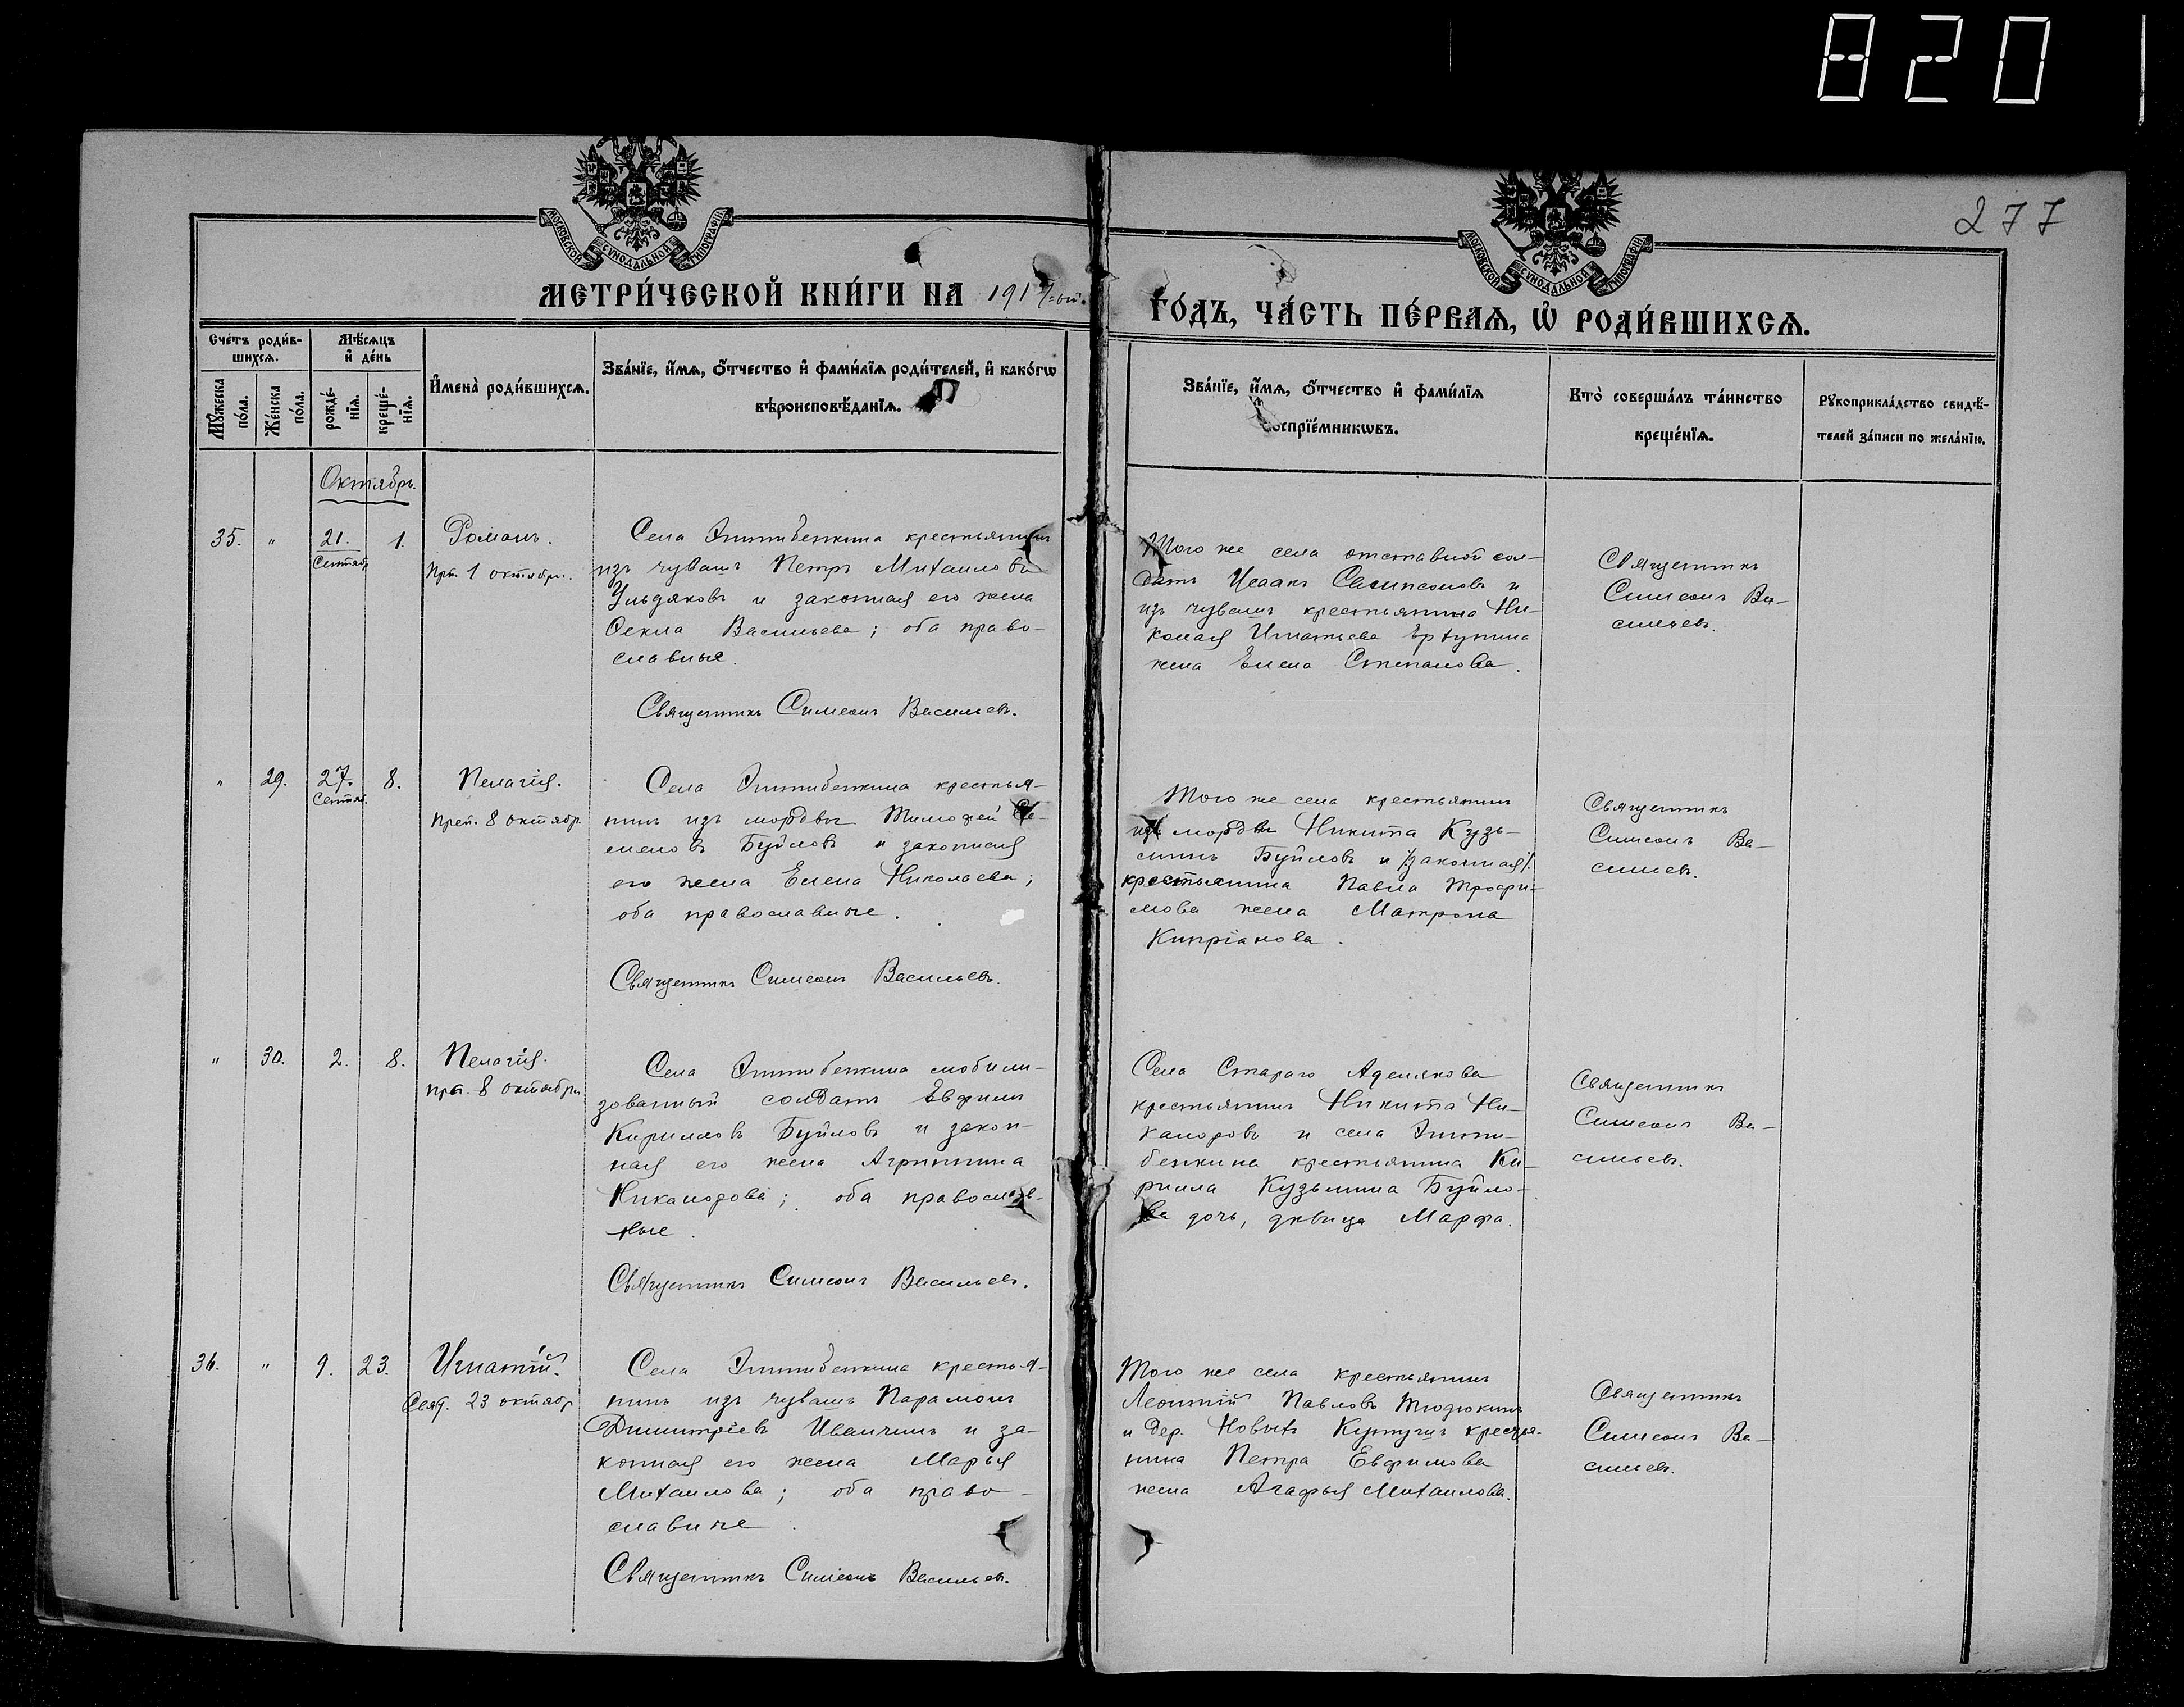 820
277
МОСКОВСКОЙ СѴНОДАЛЬНОЙ ТИПОГРАФІИ.
МОСКОВСКОЙ СѴНОДАЛЬНОЙ ТИПОГРАФІИ.
МЕТРИ́ЧЕСКОЙ КНИ́ГИ НА 191
ГО́ДЪ, ЧА́СТЬ ПЕ́РВАѦ, Ѡ҆ РОДИ́ВШИХСѦ.
Сче́тъ роди́в-
шихсѧ.
Мѣ́сѧцъ
и҆ де́нь
Мꙋ́жеска
по́ла.
Же́нска
по́ла.
рожде́-
нїѧ.
креще́-
нїѧ.
И҆мена̀ роди́вшихсѧ.
Зва́нїе, и҆́мѧ, ѻ҆́тчество и҆ фами́лїѧ роди́телей, и҆ како́гѡ
вѣроисповѣ́данїѧ.
Зва́нїе, и҆́мѧ, ѻ҆́тчество и҆ фами́лїѧ
воспрїе́мникѡвъ.
Кто̀ соверша́лъ та́инство
креще́нїѧ.
Рꙋкоприкла́дство свидѣ́-
телей за́писи по жела́нїю.
Октябрь.
35. " 21. 1. Романъ.
Сентяб.
Прп. 1 октября.
Села Эштебенкина крестьянинъ
изъ чувашъ Петръ Михаиловъ
Ульдяковъ и законная его жена
Ѳекла Васильева; оба право-
славные.
Священникъ Симеонъ Васильевъ.
Того же села отставной сол-
датъ Исаакъ Сампсоновъ и
изъ чувашъ крестьянина Ни-
колая Игнатьева
жена Елена Степанова.
Священникъ
Симеонъ Ва-
сильевъ.
" 29. 27. 8. Пелагія.
Сентяб.
Преп. 8 октябр.
Села Эштебенкина крестья-
нинъ изъ мордвы Тимофей Се-
меновъ Буйловъ и законная
его жена Елена Николаева;
оба православные.
Священникъ Симеонъ Васильевъ.
Того же села крестьянинъ
изъ мордвы Никита Кузь-
минъ Буйловъ и /законная/
крестьянина Павла Трофи-
мова жена Матрона
Кипріанова.
Священникъ
Симеонъ Ва-
сильевъ.
" 30. 2. 8. Пелагія.
прп. 8 октября
Села Эштебенкина мобили-
зованный солдатъ Евфимъ
Кирилловъ Буйловъ и закон-
ная его жена Агриппина
Никанорова; оба православ-
ные.
Священникъ Симеонъ Васильевъ.
Села Стараго Аделякова
крестьянинъ Никита Ни-
каноровъ и села Эште-
бенкина крестьянина Ки-
рилла Кузьмина Буйло-
ва дочь, дѣвица Марфа.
Священникъ
Симеонъ Ва-
сильевъ.
36. " 9. 23. Игнатій.
Свящ. 23 октябр
Села Эштебенкина крестья-
нинъ изъ чувашъ Парамонъ
Димитріевъ Иванчинъ и за-
конная его жена Марья
Михаилова; оба право-
славные.
Священникъ Симеонъ Васильевъ.
Того же села крестьянинъ
Леонтій Павловъ Тюдюкинъ
и дер. Новыхъ Кутушъ крестья-
нина Петра Евфимова
жена Агафья Михаилова.
Священникъ
Симеонъ Ва-
сильевъ.